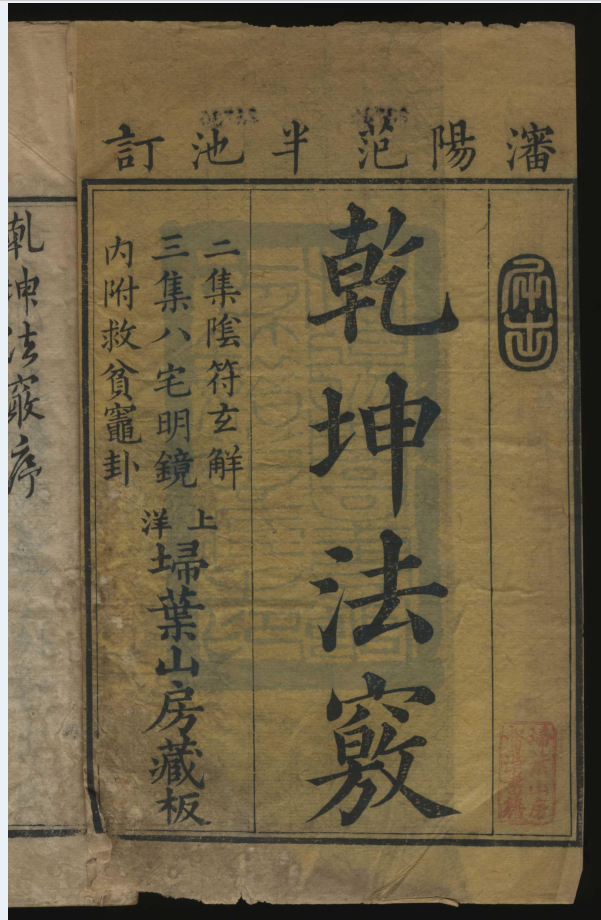 瀋陽范半池訂
乾坤法竅
二集陰符玄解
三集八宅明鏡
内附救貧竈卦
上洋
埽葉山房藏板
乾坤法竅序